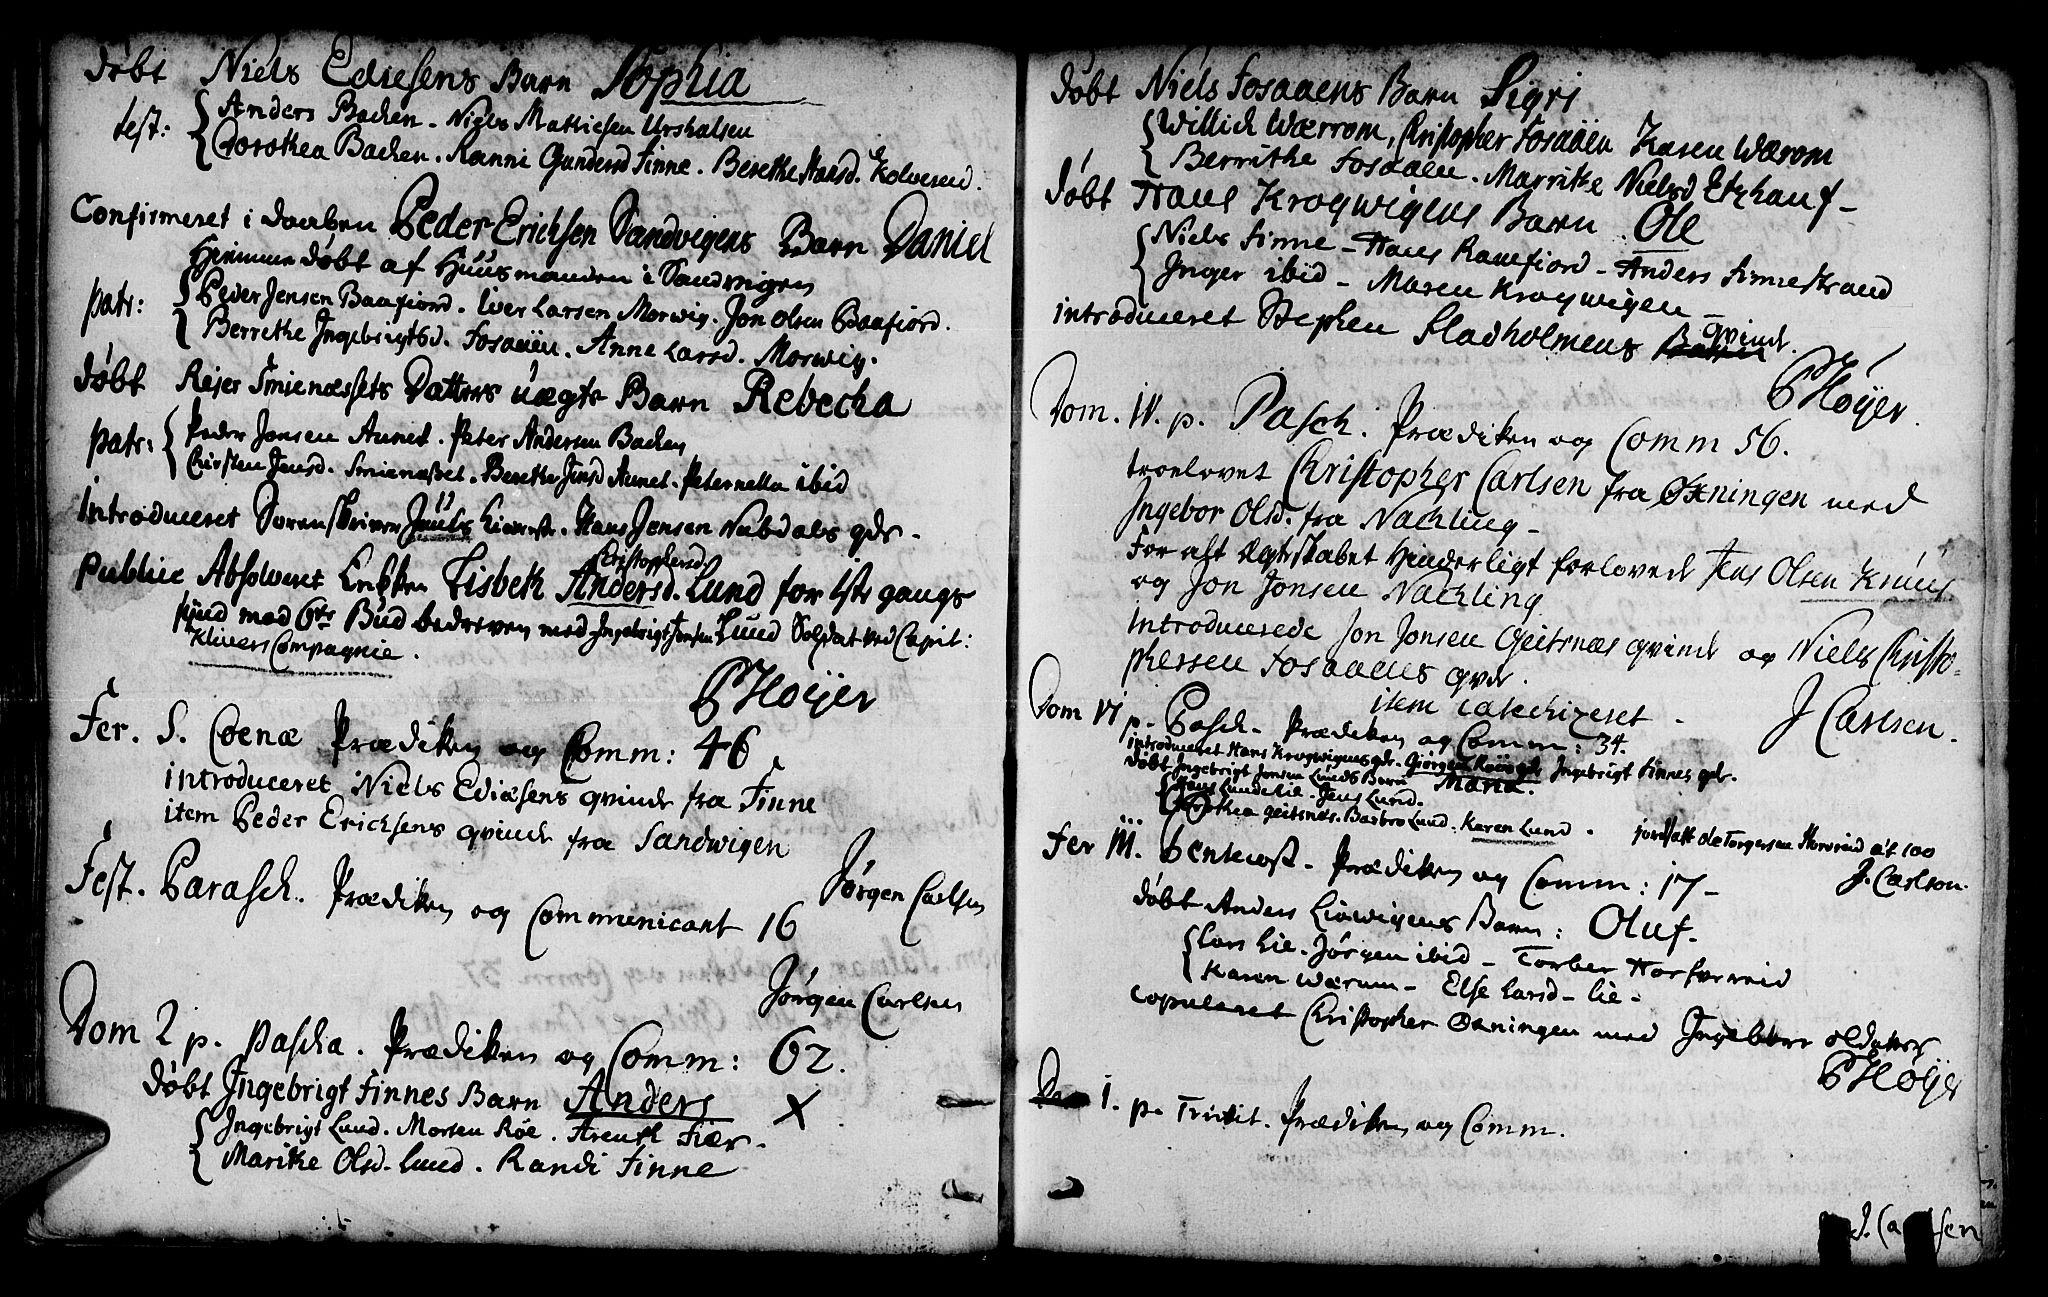 døbt Niels Ediesens Barn Sophia
test: Anders Backen. Niels Mathiesen Urshalsen
Dorothea Backen. Ranni Gundersd Finne. Berethe Hansd. Kolvereid.
Confirmeret i daaben Peder Erichsen Sandvigens Barn Daniel
Hiemme døbt af Huusmanden i Sandvigen
patr: Peder Jensen Baafiord. Iver Larsen Morwig. Jon Olsen Baafiord.
Berrethe Ingebrigtsd. Fosaaen. Anne Larsd. Morwig.
døbt Rejer Smienæssets Datters uægte Barn Rebecka
patr: Peder Jonsen Aunet. Peter Andersen Backen
Chirsten Jensd. Smienæsset. Berethe Jensd Aunet. Peternella ibid
Introduceret Sorenskriver Juuls. Hans Jensen Nubdals qde.
Christophersd
Public Absolveret Enken Lisbeth Andersd. Lund for 1ste gangs
synd mod 6te Bud bedreven med Ingebrigt Jensen Lund Soldat ved Capit:
Klüvers Compagnie.
P Høyer
Fer. S. Coenæ Prædiken og Comm: 46
introduceret Niels Ediæsens qvinde fra Finne
item Peder Ericksens qvinde fra Sandwigen
Jørgen Carlsen
Fest. Parasch. Prædiken og Communicant 16
Jørgen Carlsen
Dom 2 p. Pascha. Prædiken og Comm: 62.
døbt Ingebrigt Finnes Barn Anders X
Ingebrigt Lund. Morten Røe. Arent Fiær.
Marithe Olsd. Lund. Randi Finne
døbt Niels Fosaaens Barn Sigri
Willich Wærrom, Christopher Fosaaen Karen Wærom
Berrithe Fosaaen. Marrithe Nielsd Etzhauf
døbt Hans Krogwigens Barn Ole
Niels Finne - Hans Ranefiord - Anders Finnestrand
Inger ibid - Maren Krogwigen -
introduceret Stephen Sladholmens qvinde.
P Høyer.
Dom. IV. p. Pasch. Prædiken og Comm 56.
troelovet Christopher Carlsen fra Øxningen med
Ingebor Olsd. fra Nachling -
For alt Ægteskabet Hinderligt forlovede Jens Olsen
og Jon Jonsen Nachling
Introducerede Jon Jonsen Geitsnæs qvinde og Niels Christo-
phersen Fosaaens qvde.
item catechizeret - J Carlsen.
Dom VI p. Pasch. Prædiken og Comm: 34.
introduceret Hans Krogwigens qde. Giørgen Røes qde Ingebrigt Finnes qde.
døbt Ingebrigt Jensen Lunds Barn Maria.
Hans Lundelie. Jens Lund.
Dorothea Geitsnæs. Barbro Lund. Karen Lund.
jordfast Ole Torgersen Horvreid æt 100
J. Carlson.
Fer III. Pentecost - Prædiken og Comm: 17 -
døbt Anders Liawigens Barn: Oluf.
Lars Lie. Jørgen ibid - Torber Horfvereid
Karen Wærum - Else Larsd - Lie -
copuleret Christopher Øxningen med Ingebor Olsdatter
P Høyer
Dom 1. p. Trinit. Prædiken og Comm.
J. Ca lsen